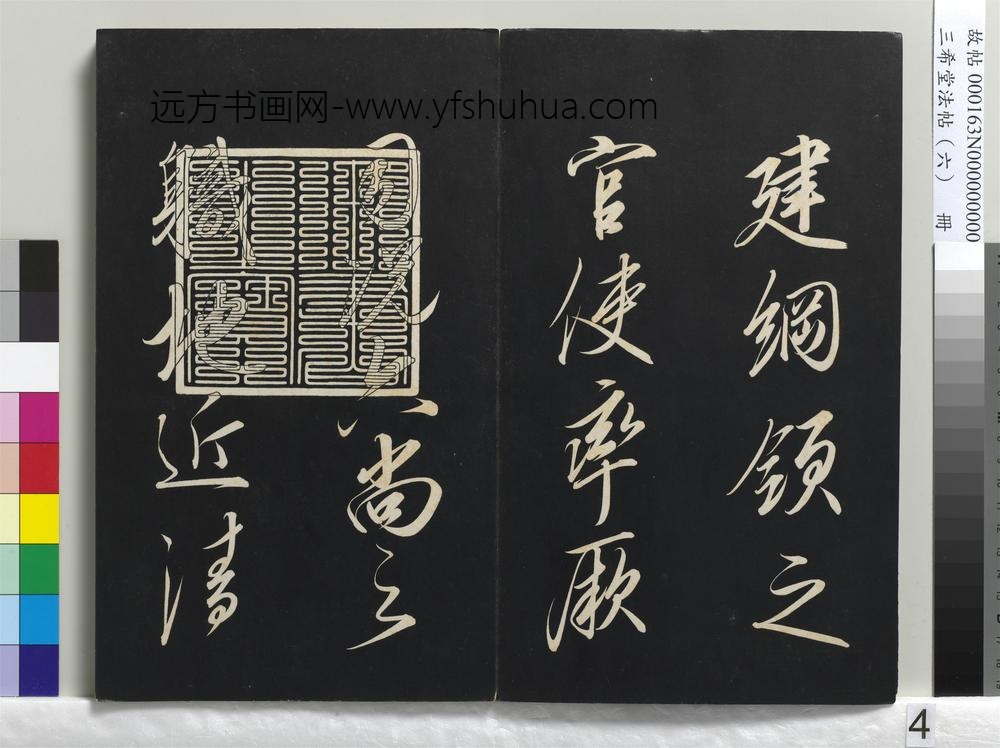 远方书画网-www.yfshuhua.com
建綱領之
官使率厥
司况六尚之
職地近清
故帖 000163N000000000
三希堂法帖（六） 冊
4